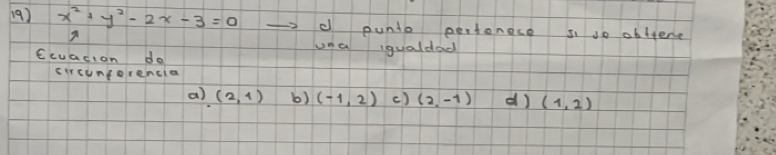 19) x² + y² - 2x - 3 = 0 → el punto pertenece si se obtiene
una igualdad
Ecuacion de
circunferencia
a) (2,1) b) (-1,2) c) (2,-1) d) (1,2)